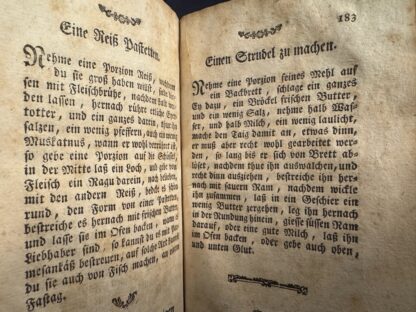 Eine Reiß Pasteten.
Nehme eine Porzion Reiß, nachdem
du sie groß haben willst, siede sol-
sen mit Fleischbrühe, nachdem halb
den lassen, hernach rühre etliche Eyer-
totter, und ein ganzes darein, thue ihn
salzen, ein wenig pfeffern, auch ein wenig
Muskatnus, wann er wohl verrührt ist,
so gebe eine Porzion auf die Schüssel,
in der Mitte laß ein Loch, und gib ein
Fleisch ein Ragu darein, nachdem
mit den andern Reiß, deckt es schön
rund, den Form von einer Pasteten,
bestreiche es hernach mit frischen Butter,
und lasse sie im Ofen backen, wann du
Liebhaber sind, so kannst du es mit Par-
mesankäß bestreuen, auf solche Art kannst
du sie auch von Fisch machen, an einem
Fasttag.
183
Einen Strudel zu machen.
Nehme eine Porzion feines Mehl auf
ein Backbrett, schlage ein ganzes
Ey dazu, ein Bröckel frischen Butter,
Salz, und ein wenig Zucker, nehme halb Was-
ser, und halb Milch, ein wenig laulicht,
mache den Taig damit an, etwas dinn,
er muß aber recht wohl gearbeitet wer-
den, so lang bis er sich von Brett ab-
löset, nachdem thue ihn auswalchen, und
recht dinn ausziehen, bestreiche ihn her-
nach mit sauern Ram, nachdem wickle
ihn zusammen, laß in ein Geschier ein
wenig Butter zergehen, leg ihn hernach
in der Rundung hinein, giesse süssen Ram
daran, oder eine gute Milch, laß ihn
im Ofen backen, oder gebe auch oben
und unten Glut.